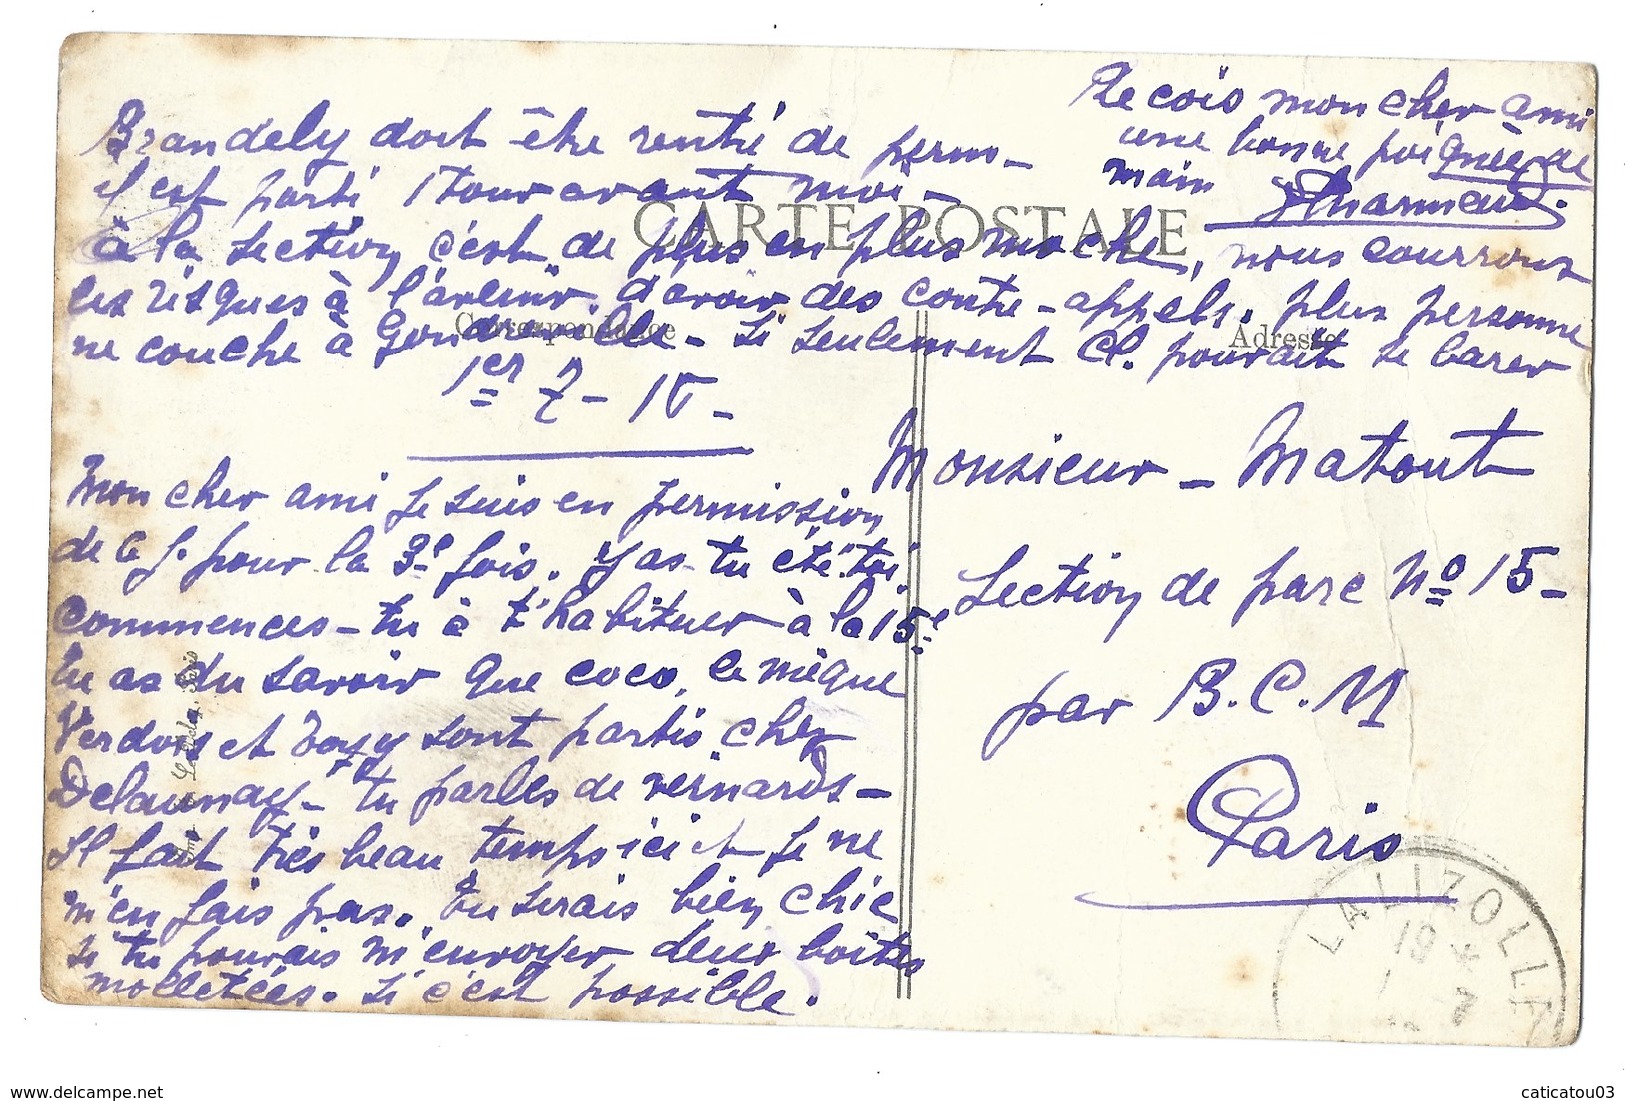 1er 7-15-
Mon cher ami je suis en permission
de 6 j. pour la 3e fois. y as-tu été toi.
commences-tu à t'habituer à la 15e
tu as du savoir que coco, le mèque
Verdois et sont partis chez
Delaunay- tu parles de veinards-
Il fait très beau temps ici et je ne
m'en fais pas. tu serais bien chic
si tu pouvais m'envoyer deux boîtes
molletées. si c'est possible.
Brandely doit être rentré de perm-
il est parti 1 tour avant moi-
à la section c'est de plus en plus moche, nous courrons
les risques à l'avenir d'avoir des contre-appels. plus personne
ne couche à Gondreville- si seulement Cl. pourait se barer
Recois mon cher ami
une bonne poignée de
main
CARTE POSTALE
Correspondance
Adresse
Monsieur - Matout
Section de parc No 15-
par B.C.M
Paris
LALIZOLLE
19 *
1 -7
delcampe.net
caticatou03